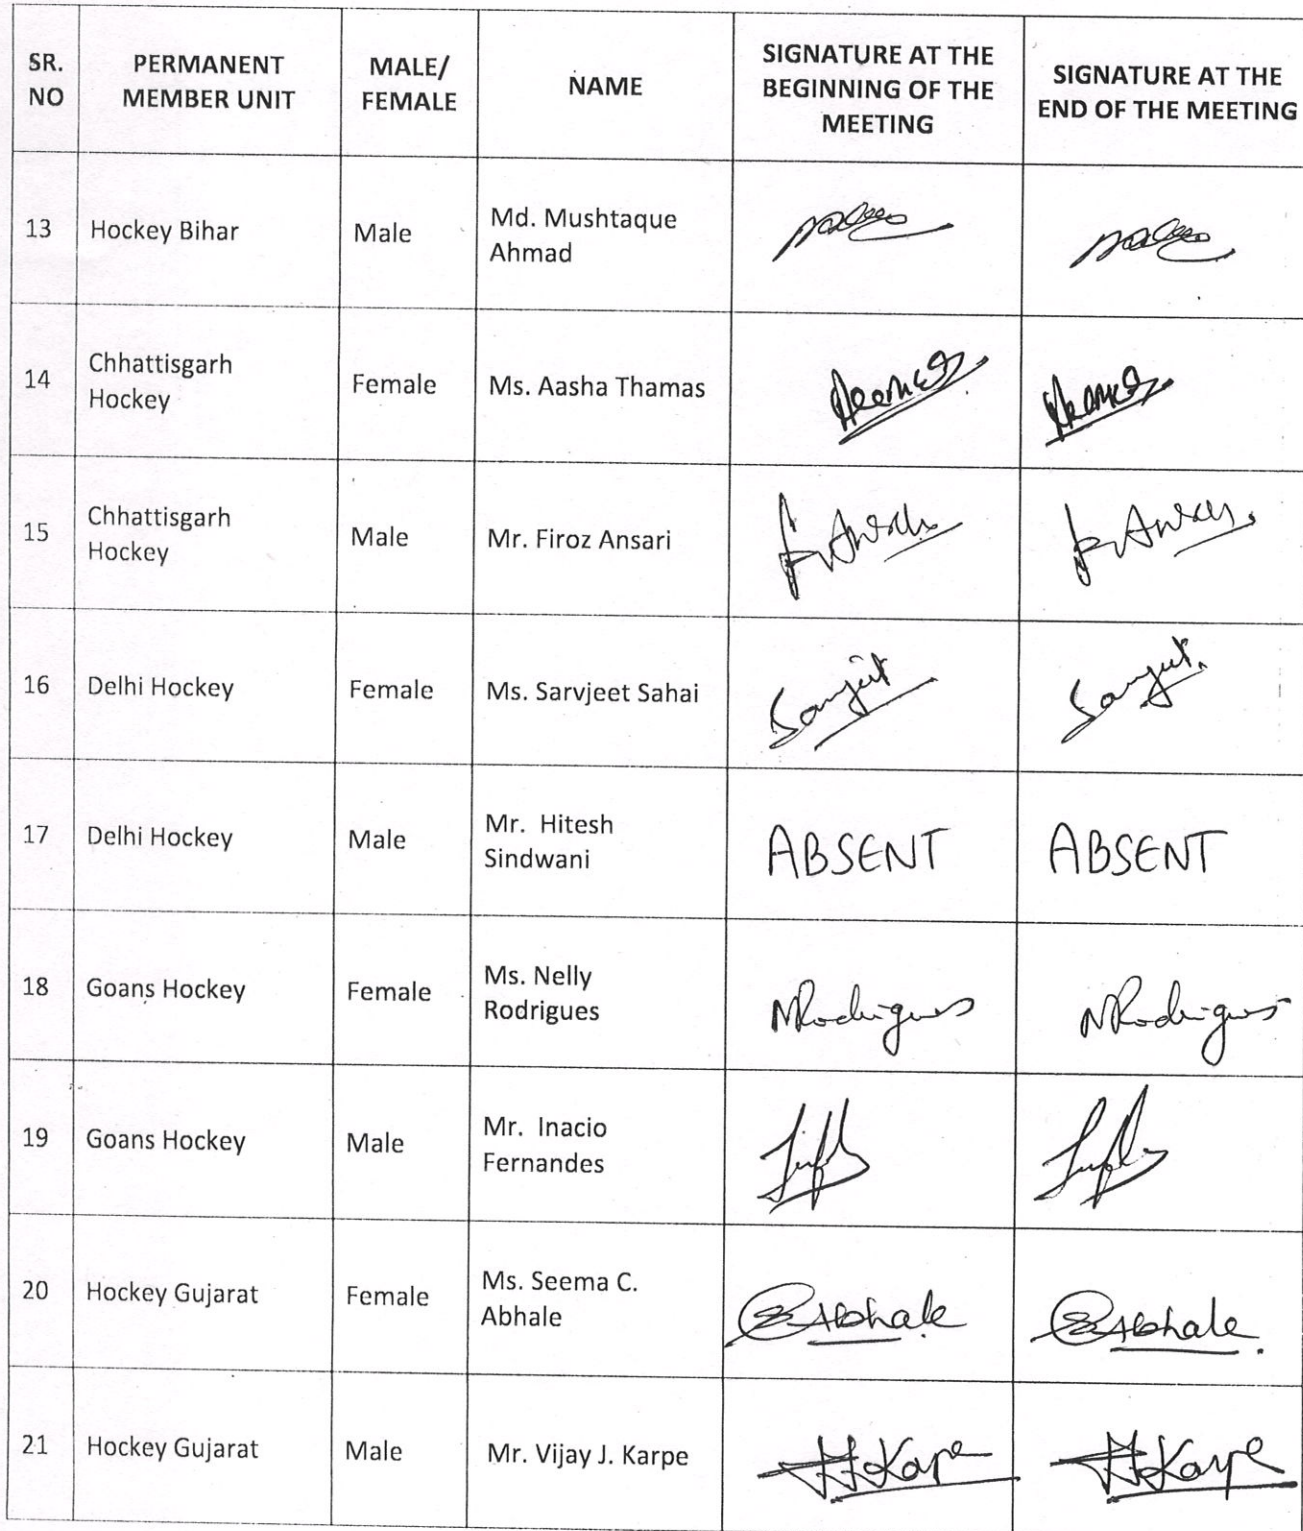 SR. NO
PERMANENT MEMBER UNIT
MALE/ FEMALE
NAME
SIGNATURE AT THE BEGINNING OF THE MEETING
SIGNATURE AT THE END OF THE MEETING
13
Hockey Bihar
Male
Md. Mushtaque
Ahmad
14
Chhattisgarh
Hockey
Female
Ms. Aasha Thamas
15
Chhattisgarh
Hockey
Male
Mr. Firoz Ansari
16
Delhi Hockey
Female
Ms. Sarvjeet Sahai
17
Delhi Hockey
Male
Mr. Hitesh
Sindwani
ABSENT
ABSENT
18
Goans Hockey
Female
Ms. Nelly
Rodrigues
NRodrigues
NRodrigues
19
Goans Hockey
Male
Mr. Inacio
Fernandes
20
Hockey Gujarat
Female
Ms. Seema C.
Abhale
Abhale
Abhale
21
Hockey Gujarat
Male
Mr. Vijay J. Karpe
Karpe
Karpe